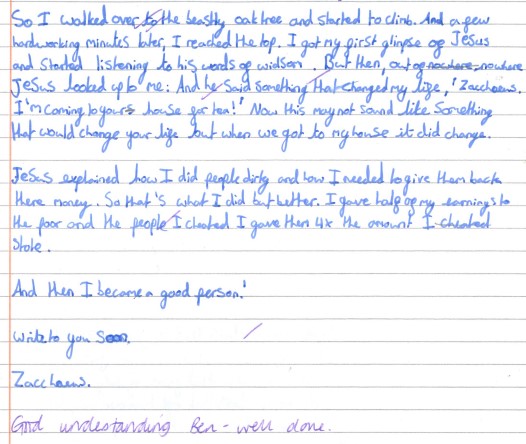 So I walked over to the beastly oak tree and started to climb. And a few
hardworking minutes later, I reached the top. I got my first glimpse of Jesus
and started listening to his words of widson. But then, out of nowhere nowhere
Jesus looked up to me: And he said something that changed my life, 'Zacchaeus.
I'm coming to your house for tea!' Now this may not sound like something
that would change your life but when we got to my house it did change.
Jesus explained how I did people dirty and how I needed to give them back
there money. So that's what I did but better. I gave half of my earnings to
the poor and the people I cheated I gave then 4x the amount I cheated
stole.
And then I became a good person!'
Write to you soon,
Zacchaeus.
Good understanding Ben - well done.